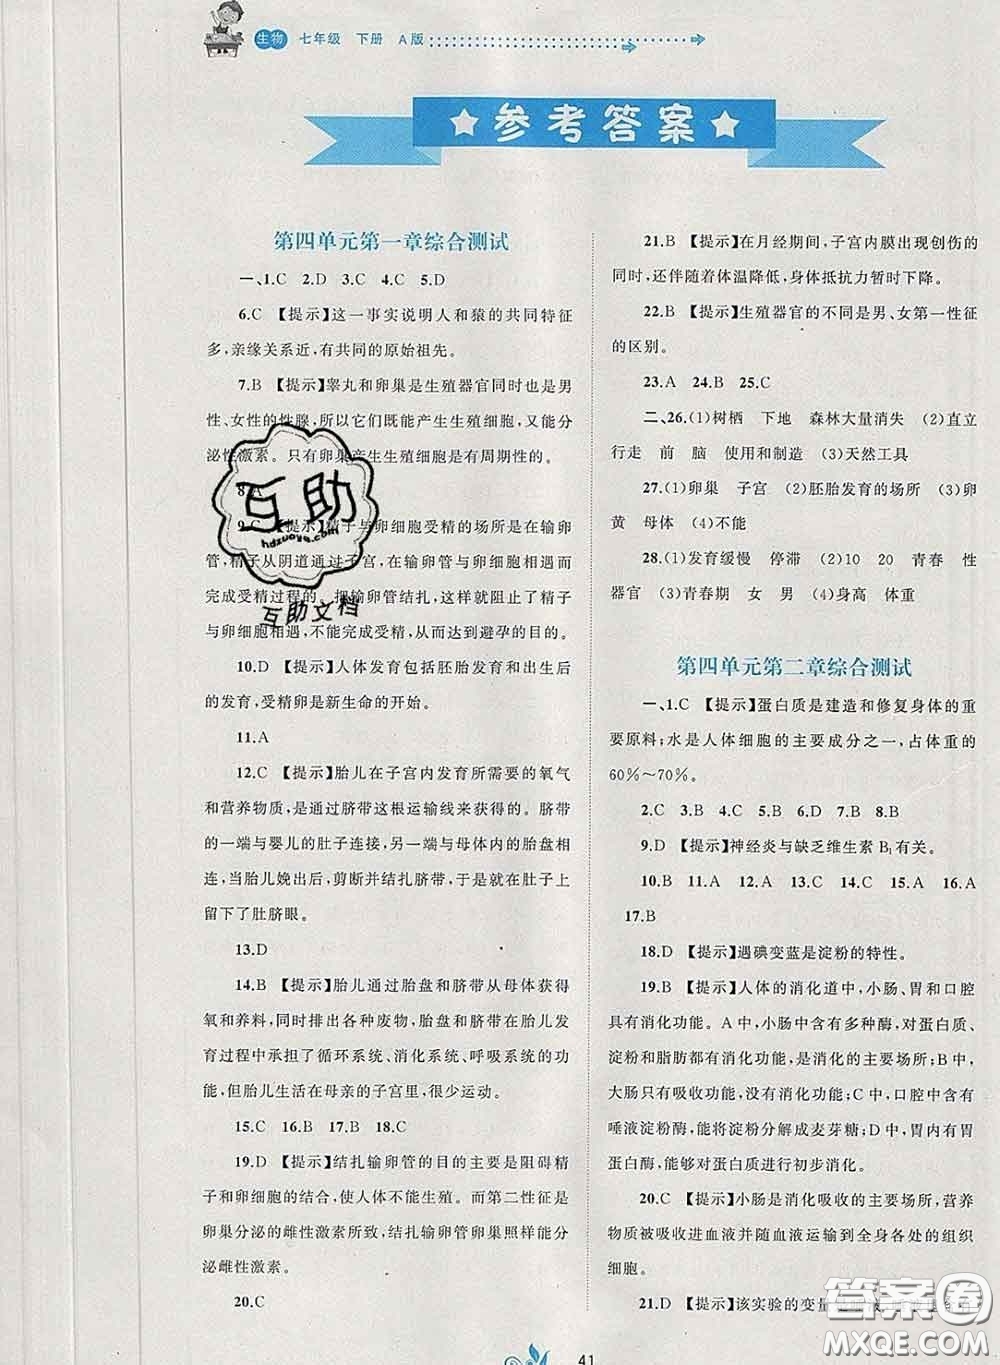 生物 七年级 下册 A版
参考答案
第四单元第一章综合测试
一、1.C 2.D 3.C 4.C 5.D
6.C 【提示】这一事实说明人和猿的共同特征
多，亲缘关系近，有共同的原始祖先。
7.B 【提示】睾丸和卵巢是生殖器官同时也是男
性、女性的性腺，所以它们既能产生生殖细胞，又能分
泌性激素。只有卵巢产生生殖细胞是有周期性的。
8.A
9.C 【提示】精子与卵细胞受精的场所是在输卵
管，精子从阴道通过子宫，在输卵管与卵细胞相遇而
完成受精过程的。把输卵管结扎，这就阻止了精子
与卵细胞相遇，不能完成受精，从而达到避孕的目的。
10.D 【提示】人体发育包括胚胎发育和出生后
的发育，受精卵是新生命的开始。
11.A
12.C 【提示】胎儿在子宫内发育所需要的氧气
和营养物质，是通过脐带这根运输线来获得的。脐带
的一端与婴儿的肚子连接，另一端与母体内的胎盘相
连，当胎儿娩出后，剪断并结扎脐带，就在肚子上
留下了肚脐眼。
13.D
14.B 【提示】胎儿通过胎盘和脐带从母体获得
氧和养料，同时排出各种废物，胎盘和脐带在胎儿发
育过程中承担了循环系统、消化系统、呼吸系统的功
能，胎儿生活在母亲的子宫里，很少运动。
15.C 16.B 17.B 18.C
19.D 【提示】结扎输卵管的目的主要是阻碍精
子和卵细胞的结合，使人体不能生殖。而第二性征是
卵巢分泌的雌性激素所致，结扎输卵管卵巢照样能分
泌雌性激素。
20.C
21.B 【提示】在月经期间，子宫内膜出现创伤的
同时，还伴随着体温降低，身体抵抗力暂时下降。
22.B 【提示】生殖器官的不同是男、女第一性征
的区别。
23.A 24.B 25.C
二、26.(1)树栖 下地 森林大量消失 (2)直立
行走 前 脑 使用和制造 (3)天然工具
27.(1)卵巢 子宫 (2)胚胎发育的场所 (3)卵
黄 母体 (4)不能
28.(1)发育缓慢 停滞 (2)10 20 青春 性
器官 (3)青春期 女 男 (4)身高 体重
第四单元第二章综合测试
一、1.C 【提示】蛋白质是建造和修复身体的重
要原料；水是人体细胞的主要成分之一，占体重的
60%～70%。
2.C 3.B 4.C 5.B 6.D 7.B 8.B
9.D 【提示】神经炎与缺乏维生素B₁有关。
10.B 11.A 12.A 13.B 14.C 15.A 16.A
17.B
18.D 【提示】遇碘变蓝是淀粉的特性。
19.B 【提示】人体的消化道中，小肠、胃和口腔
具有消化功能。A中，小肠中有多种酶，对蛋白质、
淀粉和脂肪都有消化功能，是消化的主要场所；B中，
大肠只有吸收功能，没有消化功能；C中，口腔中含有
唾液淀粉酶，能将淀粉分解成麦芽糖；D中，胃内有胃
蛋白酶，能够对蛋白质进行初步消化。
20.C 【提示】小肠是消化吸收的主要场所，营养
物质被吸收进血液并随血液运输到全身各处的组织
细胞。
21.D 【提示】该实验的变量
41
互助
hdzuoye.com
互助文档
答案圈
MXQE.COM